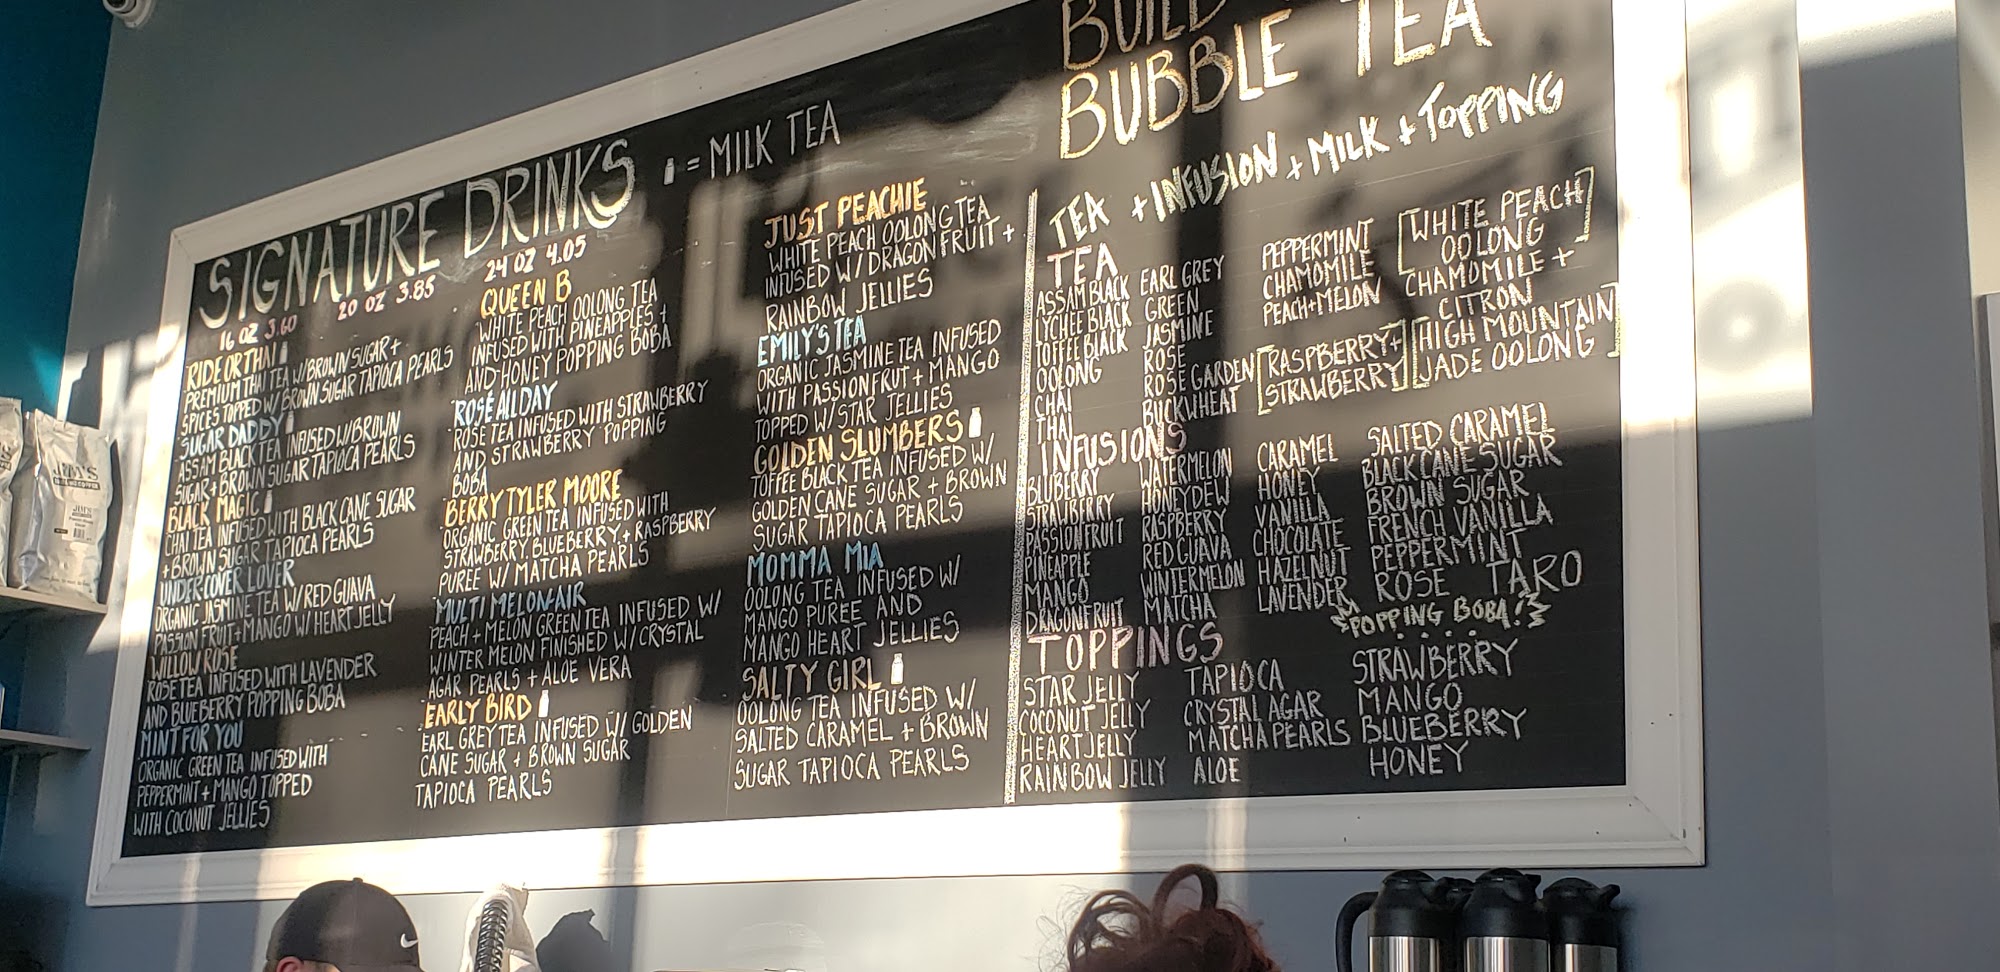 SIGNATURE DRINKS
= MILK TEA
16 OZ 3.60
20 OZ 3.85
24 OZ 4.05
RIDE OR THAI
PREMIUM THAI TEA W/BROWN SUGAR +
SPICES TOPPED W/ BROWN SUGAR TAPIOCA PEARLS
SUGAR DADDY
ASSAM BLACK TEA INFUSED W/BROWN
SUGAR + BROWN SUGAR TAPIOCA PEARLS
BLACK MAGIC
CHAI TEA INFUSED WITH BLACK CANE SUGAR
+ BROWN SUGAR TAPIOCA PEARLS
UNDER-COVER LOVER
ORGANIC JASMINE TEA W/ RED GUAVA
PASSION FRUIT + MANGO W/ HEART JELLY
WILLOW ROSE
ROSE TEA INFUSED WITH LAVENDER
AND BLUEBERRY POPPING BOBA
MINT FOR YOU
ORGANIC GREEN TEA INFUSED WITH
PEPPERMINT + MANGO TOPPED
WITH COCONUT JELLIES
QUEEN B
WHITE PEACH OOLONG TEA
INFUSED WITH PINEAPPLES +
AND HONEY POPPING BOBA
ROSÉ ALL DAY
ROSE TEA INFUSED WITH STRAWBERRY
AND STRAWBERRY POPPING
BOBA
BERRY TYLER MOORE
ORGANIC GREEN TEA INFUSED WITH
STRAWBERRY, BLUEBERRY, + RASPBERRY
PUREE W/ MATCHA PEARLS
MULTI MELON-AIR
PEACH + MELON GREEN TEA INFUSED W/
WINTER MELON FINISHED W/ CRYSTAL
AGAR PEARLS + ALOE VERA
EARLY BIRD
EARL GREY TEA INFUSED W/ GOLDEN
CANE SUGAR + BROWN SUGAR
TAPIOCA PEARLS
JUST PEACHIE
WHITE PEACH OOLONG TEA
INFUSED W/ DRAGON FRUIT +
RAINBOW JELLIES
EMILY'S TEA
ORGANIC JASMINE TEA INFUSED
WITH PASSIONFRUT + MANGO
TOPPED W/ STAR JELLIES
GOLDEN SLUMBERS
TOFFEE BLACK TEA INFUSED W/
GOLDEN CANE SUGAR + BROWN
SUGAR TAPIOCA PEARLS
MOMMA MIA
OOLONG TEA INFUSED W/
MANGO PUREE AND
MANGO HEART JELLIES
SALTY GIRL
OOLONG TEA INFUSED W/
SALTED CARAMEL + BROWN
SUGAR TAPIOCA PEARLS
BUILD
BUBBLE TEA
TEA + INFUSION + MILK + TOPPING
TEA
ASSAM BLACK
LYCHEE BLACK
TOFFEE BLACK
OOLONG
CHAI
THAI
EARL GREY
GREEN
JASMINE
ROSE
ROSE GARDEN
BUCKWHEAT
PEPPERMINT
CHAMOMILE
PEACH+MELON
[RASPBERRY+
STRAWBERRY]
[WHITE PEACH
OOLONG]
CHAMOMILE +
CITRON
[HIGH MOUNTAIN
JADE OOLONG]
INFUSIONS
BLUBERRY
STRAWBERRY
PASSIONFRUIT
PINEAPPLE
MANGO
DRAGONFRUIT
WATERMELON
HONEYDEW
RASPBERRY
RED GUAVA
WINTERMELON
MATCHA
CARAMEL
HONEY
VANILLA
CHOCOLATE
HAZELNUT
LAVENDER
SALTED CARAMEL
BLACK CANE SUGAR
BROWN SUGAR
FRENCH VANILLA
PEPPERMINT
ROSE TARO
TOPPINGS
STAR JELLY
COCONUT JELLY
HEART JELLY
RAINBOW JELLY
TAPIOCA
CRYSTAL AGAR
MATCHA PEARLS
ALOE
POPPING BOBA!
STRAWBERRY
MANGO
BLUEBERRY
HONEY
JIM'S
JIM'S